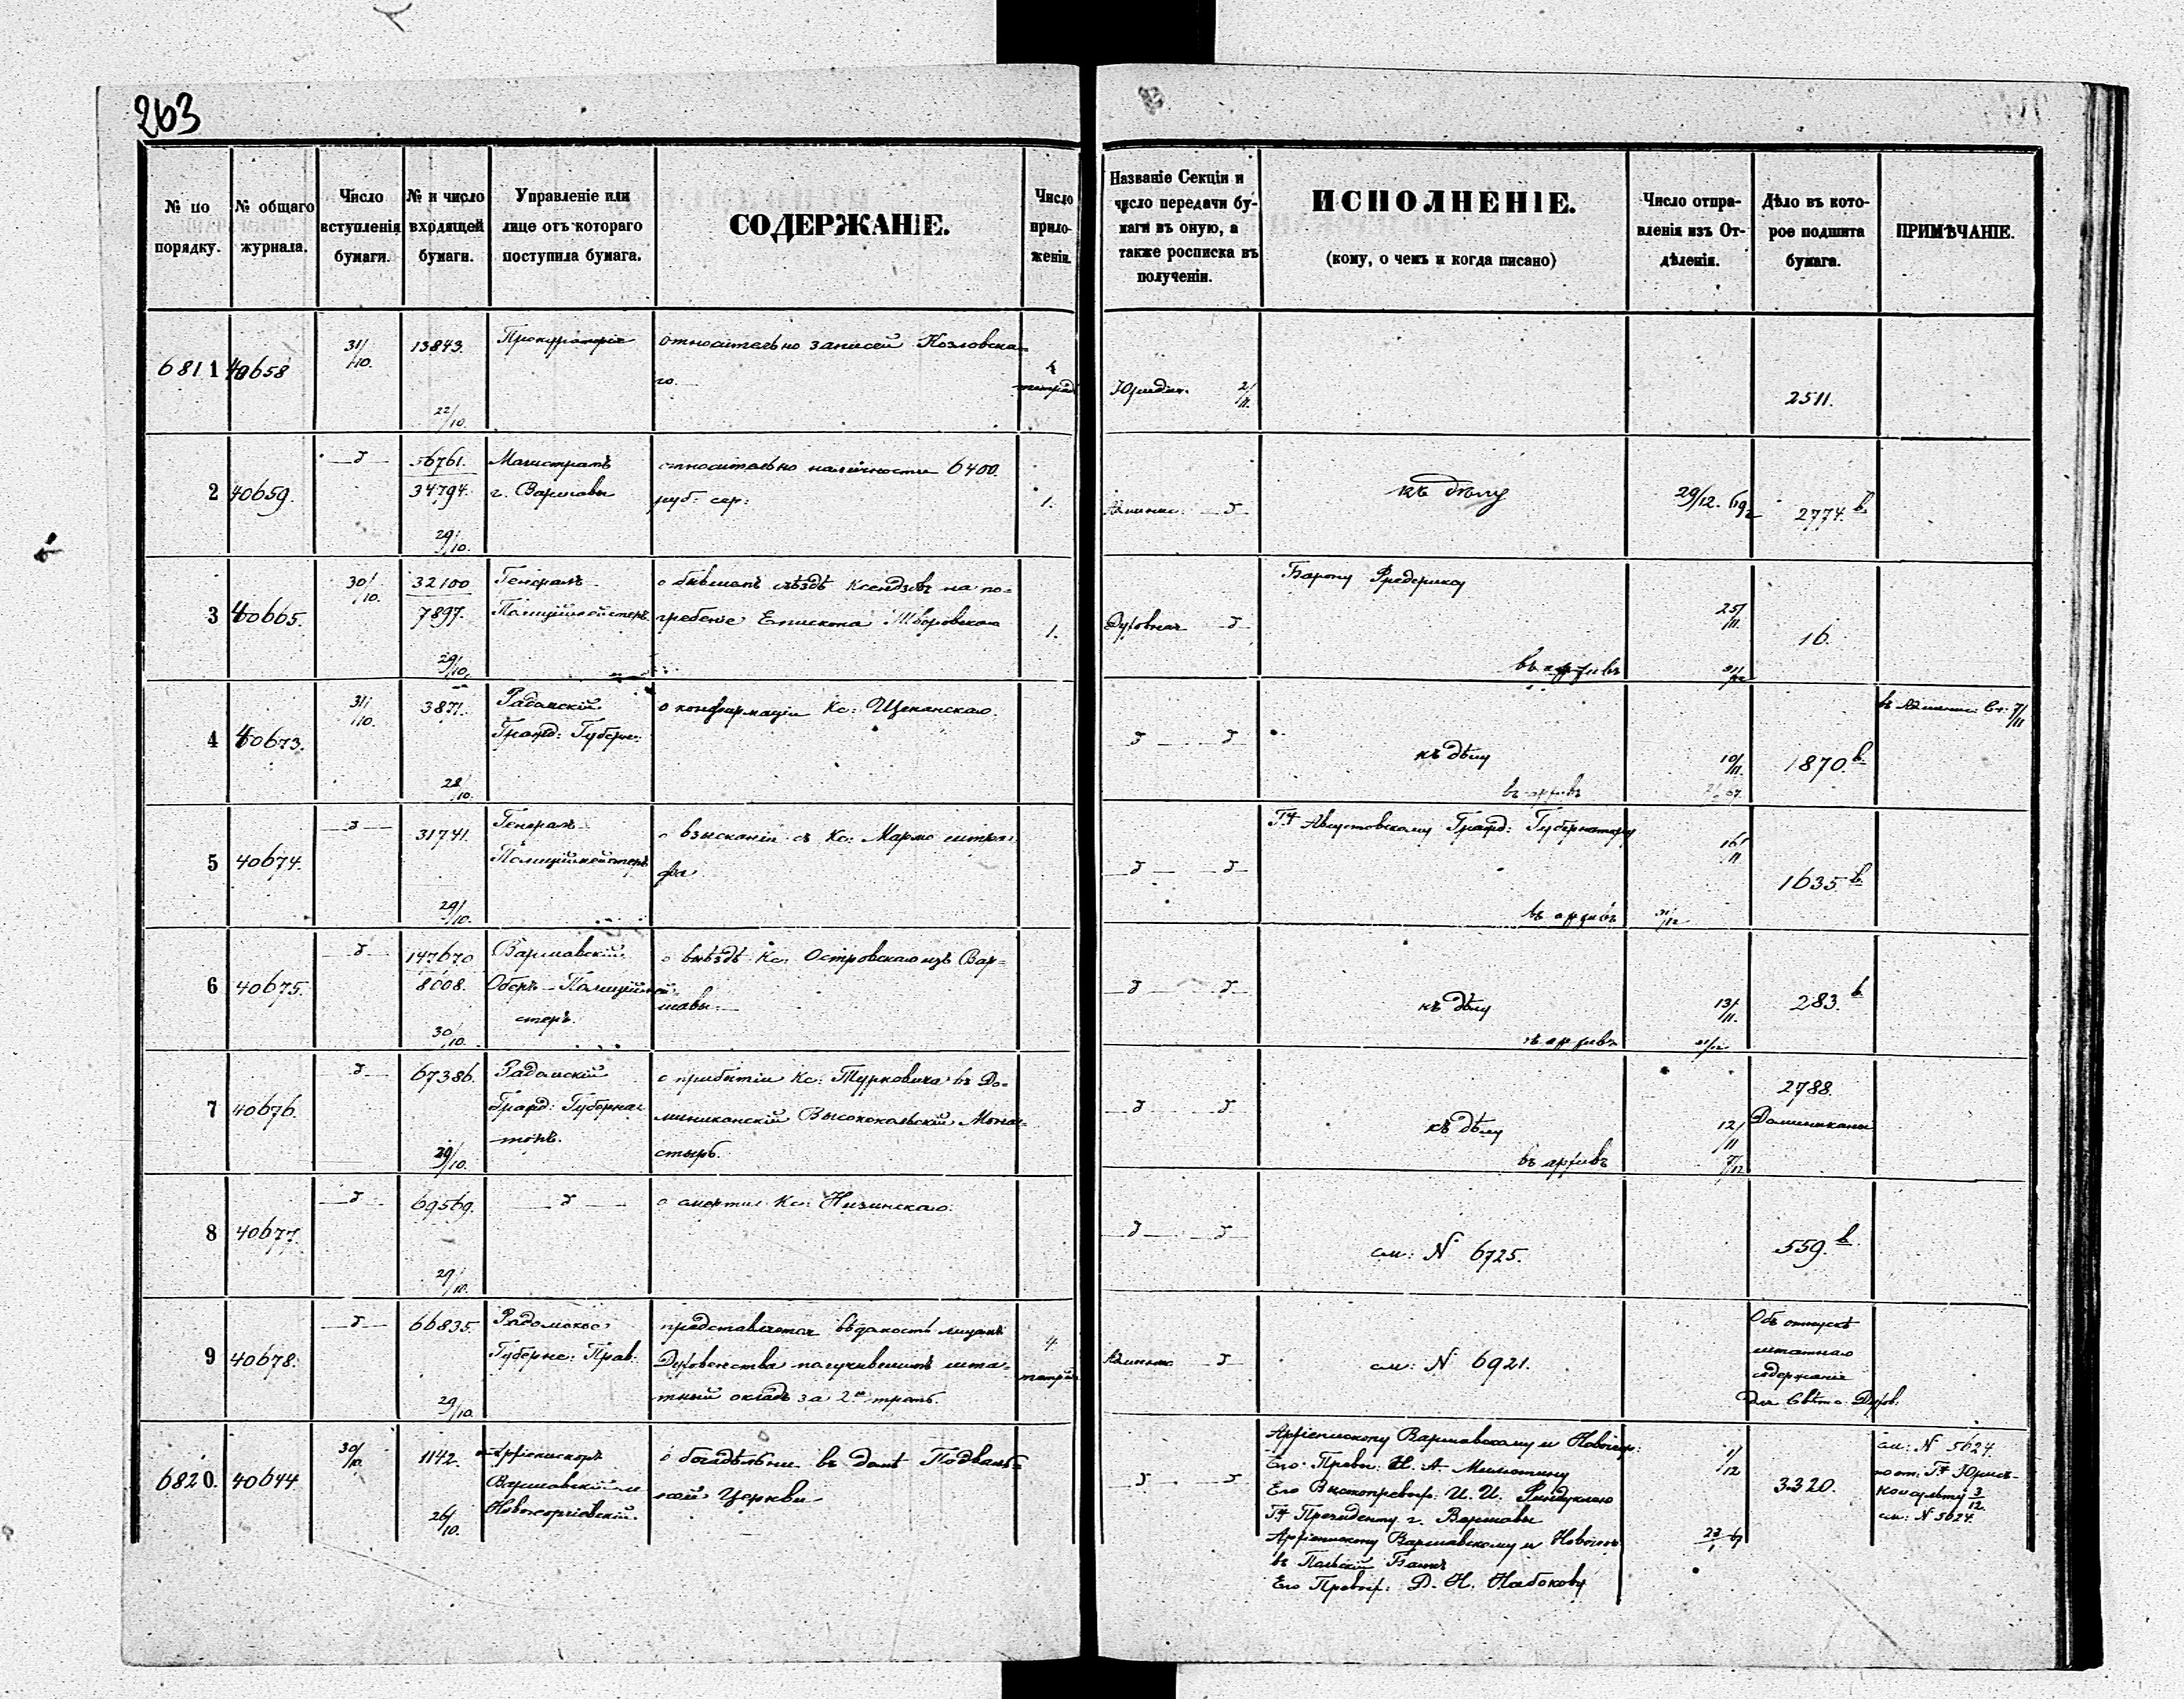 263
№ по порядку.
№ общаго журнала.
Число вступленія бумаги.
№ и число входящей бумаги.
Управленіе или лице отъ котораго поступила бумага.
СОДЕРЖАНІЕ.
Число приложеній.
Названіе Секціи и число передачи бумаги въ оную, а также росписка въ полученіи.
ИСПОЛНЕНІЕ.
(кому, о чемъ и когда писано)
Число отправленія изъ Отдѣленія.
Дѣло въ которое подшита бумага.
ПРИМѢЧАНІЕ.
6811 40658 31/10. 13843. 22/10. Прокураторія
относительно записей Козловска=
го.
Юридич. 2/11. 2511.
2 40659. 56761. 34794. 29/10. Магистратъ
г. Варшавы
относительно наличности 6400.
руб. сер:
1.
къ дѣлу 29/12. 2774. в
3 40665. 30/10. 32100 7897. 29/10. Генералъ
Полиціймейстеръ
о бывшемъ съѣздѣ Ксендзовъ на по=
гребеніе Епископа
1.
Духовная
Барону Фредериксу 25/11.
въ архивъ 31/12
16.
4 40673. 31/10. 3871. 28/10. Радомскій
Гражд: Губерн:
о конфирмаціи Кс:
къ дѣлу 10/11. 1870. в
въ архивъ
5 40674. 31741. 29/10. Генералъ
Полиціймейстеръ
о взысканіи съ Кс: штра=
фа
Гну Августовскому Гражд: Губернатору 16/11
въ архивъ 31/12
1635 в
6 40675. 147670 8008. 30/10. Варшавскій
Оберъ-Полиціймей
стеръ.
о выѣздѣ Кс: Островскаго изъ Вар=
шавы.
къ дѣлу 13/11. 283. в
въ архивъ 31/12
7 40676. 67386. 29/10. Радомскій
Гражд: Губерна
торъ.
о прибытіи Кс: Турковича въ До=
миниканскій Высококольскій Мона=
стырь.
къ дѣлу 12/11
въ архивъ
2788.
Доминиканы
8 40677. 69569. 29/10.
о смерти Кс: Низинскаго.
см: N 6725. 559. в
9 40678. 66835. 29/10. Радомское
Губернс: Прав:
представляется вѣдомость лицамъ
Духовенства получившимъ шта=
тный окладъ за 2ю треть.
4
тетрад
см: N 6921.
Объ отпускѣ
штатнаго
содержанія
для Свѣтс. Духов.
6820. 40644 30/10. 1142. 26/10. Архіепископъ
Варшавскій и
Новогеоргіевскій.
о богадѣльни въ домѣ Подваль=
ной Церкви
Архіепископу Варшавскому и Новогеор: 1/12
Его Превос: Н. А. Милютину
Его Высокопревосх: И. И. Фундуклею
Гну Президенту г. Варшавы
Архіепископу Варшавскому и Новогео.
въ Польскій Банкъ
Его Превосх: Д. Н. Набокову
3320.
см: N 5624.
Гну Юрис-
консульту 3/12
см: N 5624.